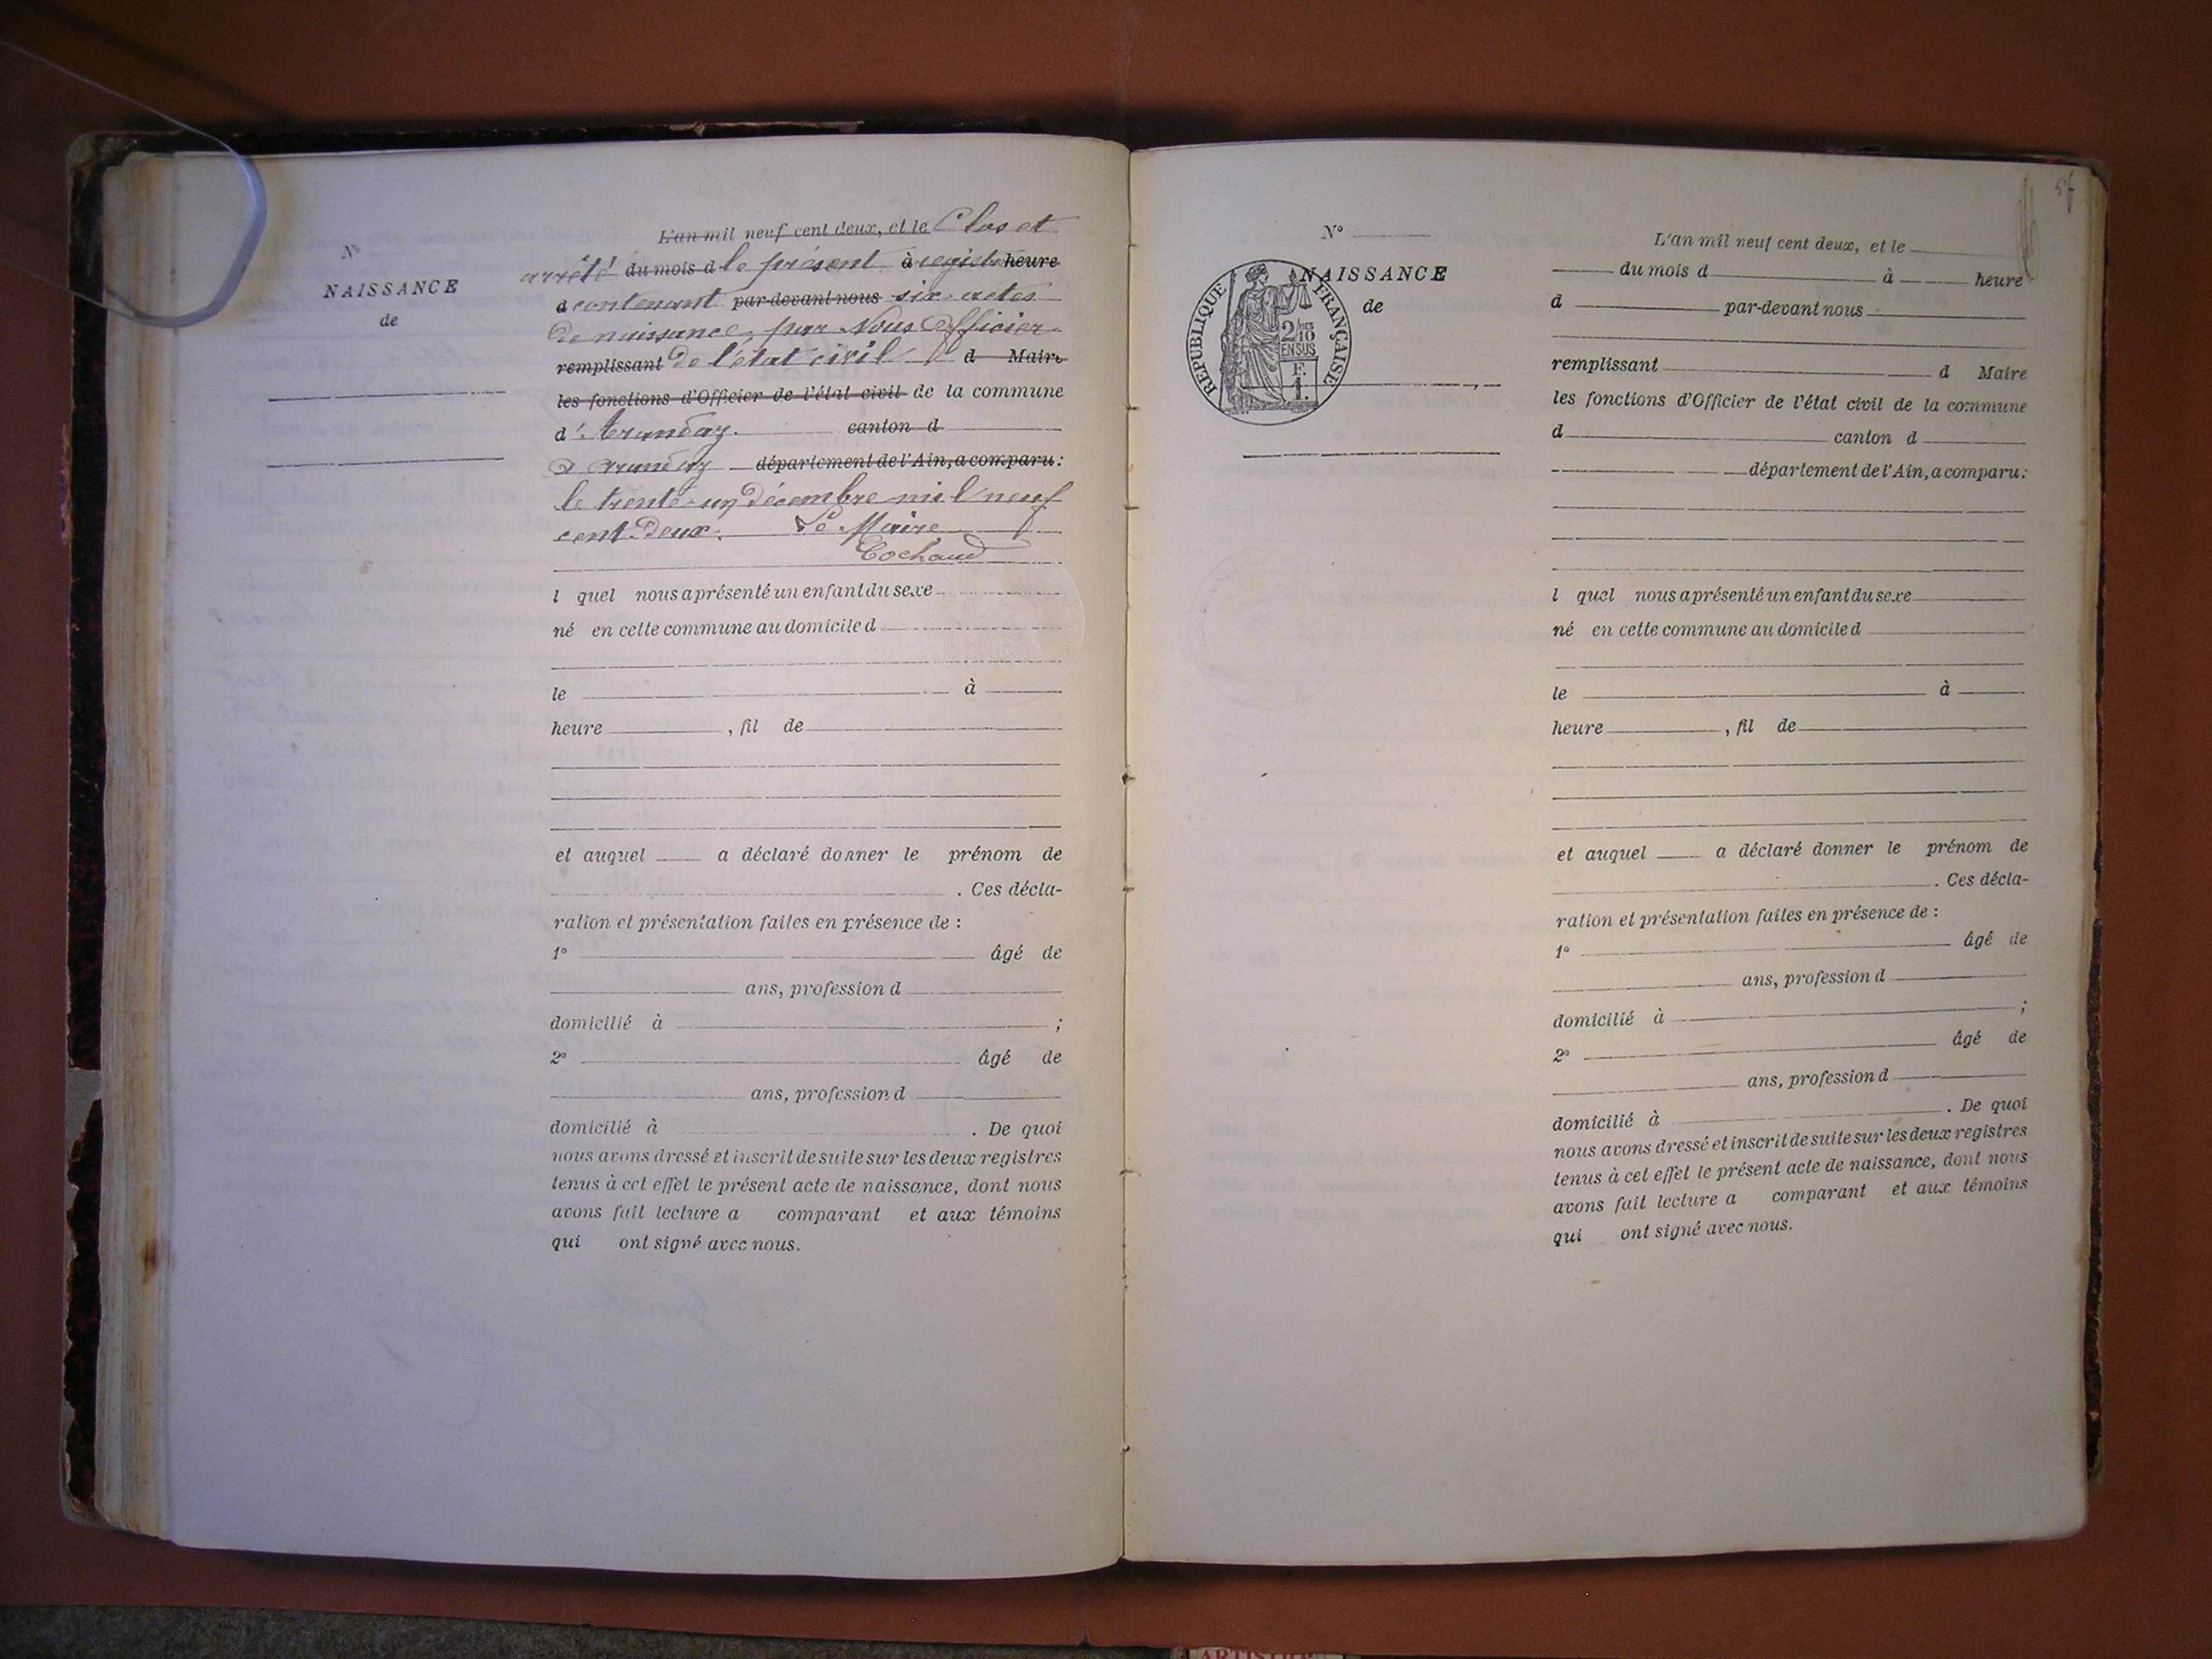 N°
NAISSANCE
de
L'an mil neuf cent deux, et le Clos et
arrêté du mois d le présent à registre heure
d contenant par-devant nous six actes
de naissance, par Nous Officier
remplissant de l'état civil d Maire
les fonctions d'Officier de l'état civil de la commune
d'Arandaz. canton d
à Arandaz département de l'Ain, a comparu :
le trente-un décembre mil neuf
cent deux. Le Maire
Cochaud
l quel nous a présenté un enfant du sexe
né en cette commune au domicile d
le à
heure , fil de
et auquel a déclaré donner le prénom de
. Ces décla-
ration et présentation faites en présence de :
1° âgé de
ans, profession d
domicilié à ;
2° âgé de
ans, profession d
domicilié à . De quoi
nous avons dressé et inscrit de suite sur les deux registres
tenus à cet effet le présent acte de naissance, dont nous
avons fait lecture a comparant et aux témoins
qui ont signé avec nous.
57
N°
NAISSANCE
de
RÉPUBLIQUE FRANÇAISE
2/10
EN SUS
F.
1.
L'an mil neuf cent deux, et le
du mois d à heure
d par-devant nous
remplissant d Maire
les fonctions d'Officier de l'état civil de la commune
d canton d
département de l'Ain, a comparu :
l quel nous a présenté un enfant du sexe
né en cette commune au domicile d
le à
heure , fil de
et auquel a déclaré donner le prénom de
. Ces décla-
ration et présentation faites en présence de :
1° âgé de
ans, profession d
domicilié à ;
2° âgé de
ans, profession d
domicilié à . De quoi
nous avons dressé et inscrit de suite sur les deux registres
tenus à cet effet le présent acte de naissance, dont nous
avons fait lecture a comparant et aux témoins
qui ont signé avec nous.